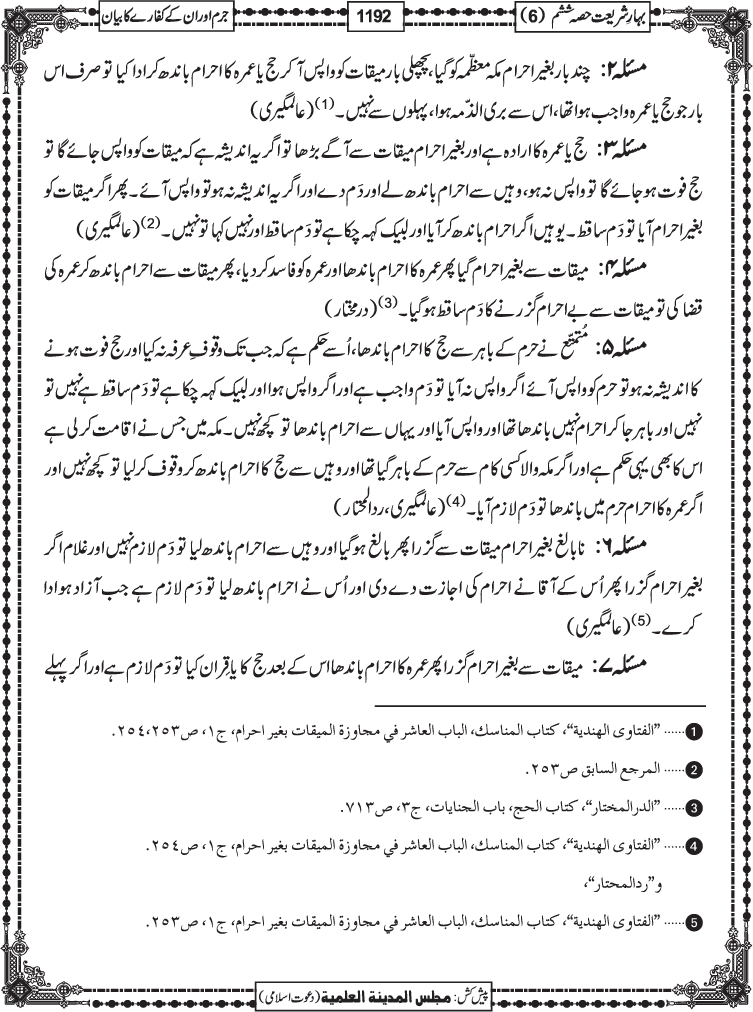 بہارشریعت حصہ ششم (6)
1192
جرم اور ان کے کفارے کا بیان
مسئلہ ۲: چند بار بغیر احرام مکہ معظّمہ کو گیا، پچھلی بار میقات کو واپس آکر حج یا عمرہ کا احرام باندھ کر ادا کیا تو صرف اس
بار جو حج یا عمرہ واجب ہوا تھا، اس سے بری الذّمہ ہوا، پہلوں سے نہیں۔(1) (عالمگیری)
مسئلہ ۳: حج یا عمرہ کا ارادہ ہے اور بغیر احرام میقات سے آگے بڑھا تو اگر یہ اندیشہ ہے کہ میقات کو واپس جائے گا تو
حج فوت ہوجائے گا تو واپس نہ ہو، وہیں سے احرام باندھ لے اور دَم دے اور اگر یہ اندیشہ نہ ہو تو واپس آئے۔ پھر اگر میقات کو
بغیر احرام آیا تو دَم ساقط۔ یوہیں اگر احرام باندھ کر آیا اور لبیک کہہ چکا ہے تو دَم ساقط اور نہیں کہا تو نہیں۔(2) (عالمگیری)
مسئلہ ۴: میقات سے بغیر احرام گیا پھر عمرہ کا احرام باندھا اور عمرہ کو فاسد کر دیا، پھر میقات سے احرام باندھ کر عمرہ کی
قضا کی تو میقات سے بے احرام گزرنے کا دَم ساقط ہوگیا۔(3) (درمختار)
مسئلہ ۵: مُتمتّع نے حرم کے باہر سے حج کا احرام باندھا، اُسے حکم ہے کہ جب تک وقوفِ عرفہ نہ کیا اور حج فوت ہونے
کا اندیشہ نہ ہو تو حرم کو واپس آئے اگر واپس نہ آیا تو دَم واجب ہے اور اگر واپس ہوا اور لبیک کہہ چکا ہے تو دَم ساقط ہے نہیں تو
نہیں اور باہر جا کر احرام نہیں باندھا تھا اور واپس آیا اور یہاں سے احرام باندھا تو کچھ نہیں۔ مکہ میں جس نے اقامت کرلی ہے
اس کا بھی یہی حکم ہے اور اگر مکہ والا کسی کام سے حرم کے باہر گیا تھا اور وہیں سے حج کا احرام باندھ کر وقوف کر لیا تو کچھ نہیں اور
اگر عمرہ کا احرام حرم میں باندھا تو دَم لازم آیا۔(4) (عالمگیری، ردالمحتار)
مسئلہ ۶: نابالغ بغیر احرام میقات سے گزرا پھر بالغ ہوگیا اور وہیں سے احرام باندھ لیا تو دَم لازم نہیں اور غلام اگر
بغیر احرام گزرا پھر اُس کے آقا نے احرام کی اجازت دے دی اور اُس نے احرام باندھ لیا تو دَم لازم ہے جب آزاد ہو ادا
کرے۔(5) (عالمگیری)
مسئلہ ۷: میقات سے بغیر احرام گزرا پھر عمرہ کا احرام باندھا اس کے بعد حج کا یا قِران کیا تو دَم لازم ہے اور اگر پہلے
1 ...... "الفتاوى الهندية"، كتاب المناسك، الباب العاشر في مجاوزة الميقات بغير احرام، ج١، ص٢٥٣،٢٥٤.
2 ...... المرجع السابق ص٢٥٣.
3 ...... "الدرالمختار"، كتاب الحج، باب الجنايات، ج٣، ص٧١٣.
4 ...... "الفتاوى الهندية"، كتاب المناسك، الباب العاشر في مجاوزة الميقات بغير احرام، ج١، ص٢٥٤.
و"ردالمحتار"،
5 ...... "الفتاوى الهندية"، كتاب المناسك، الباب العاشر في مجاوزة الميقات بغير احرام، ج١، ص٢٥٣.
پیش کش: مجلس المدینة العلمیة (دعوت اسلامی)